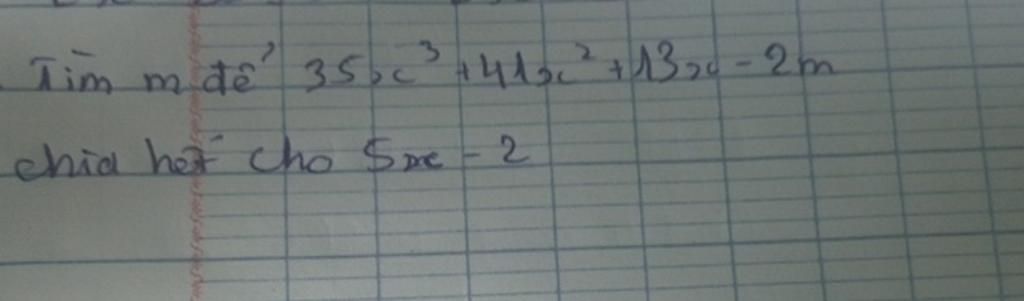 Tìm m để 35x³ + 41x² + 13x - 2m
chia hết cho 5x - 2